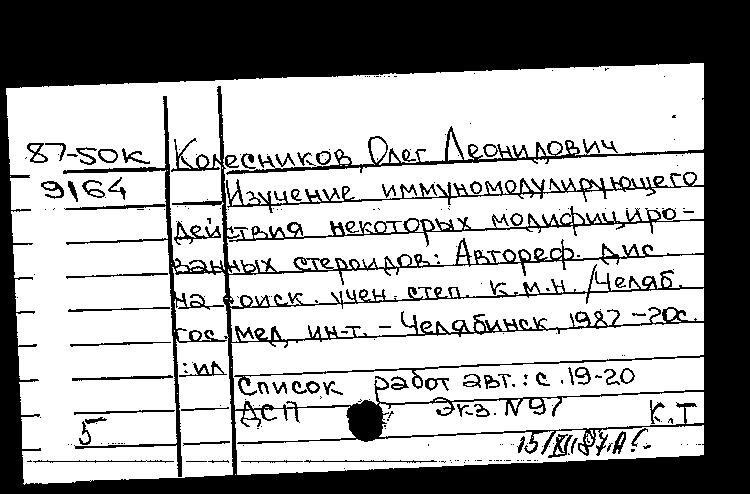 87-50к Колесников, Олег Леонидович
9164 Изучение иммуномодулирующего
действия некоторых модифициро-
ванных стероидов: Автореф. дис.
на соиск. учен. степ. к.м.н. /Челяб.
гос. мед. ин-т. - Челябинск, 1987 - 20с.
:ил
Список работ авт.: с. 19-20
ДСП Экз. N97 К.Т
5
15/XII 87.